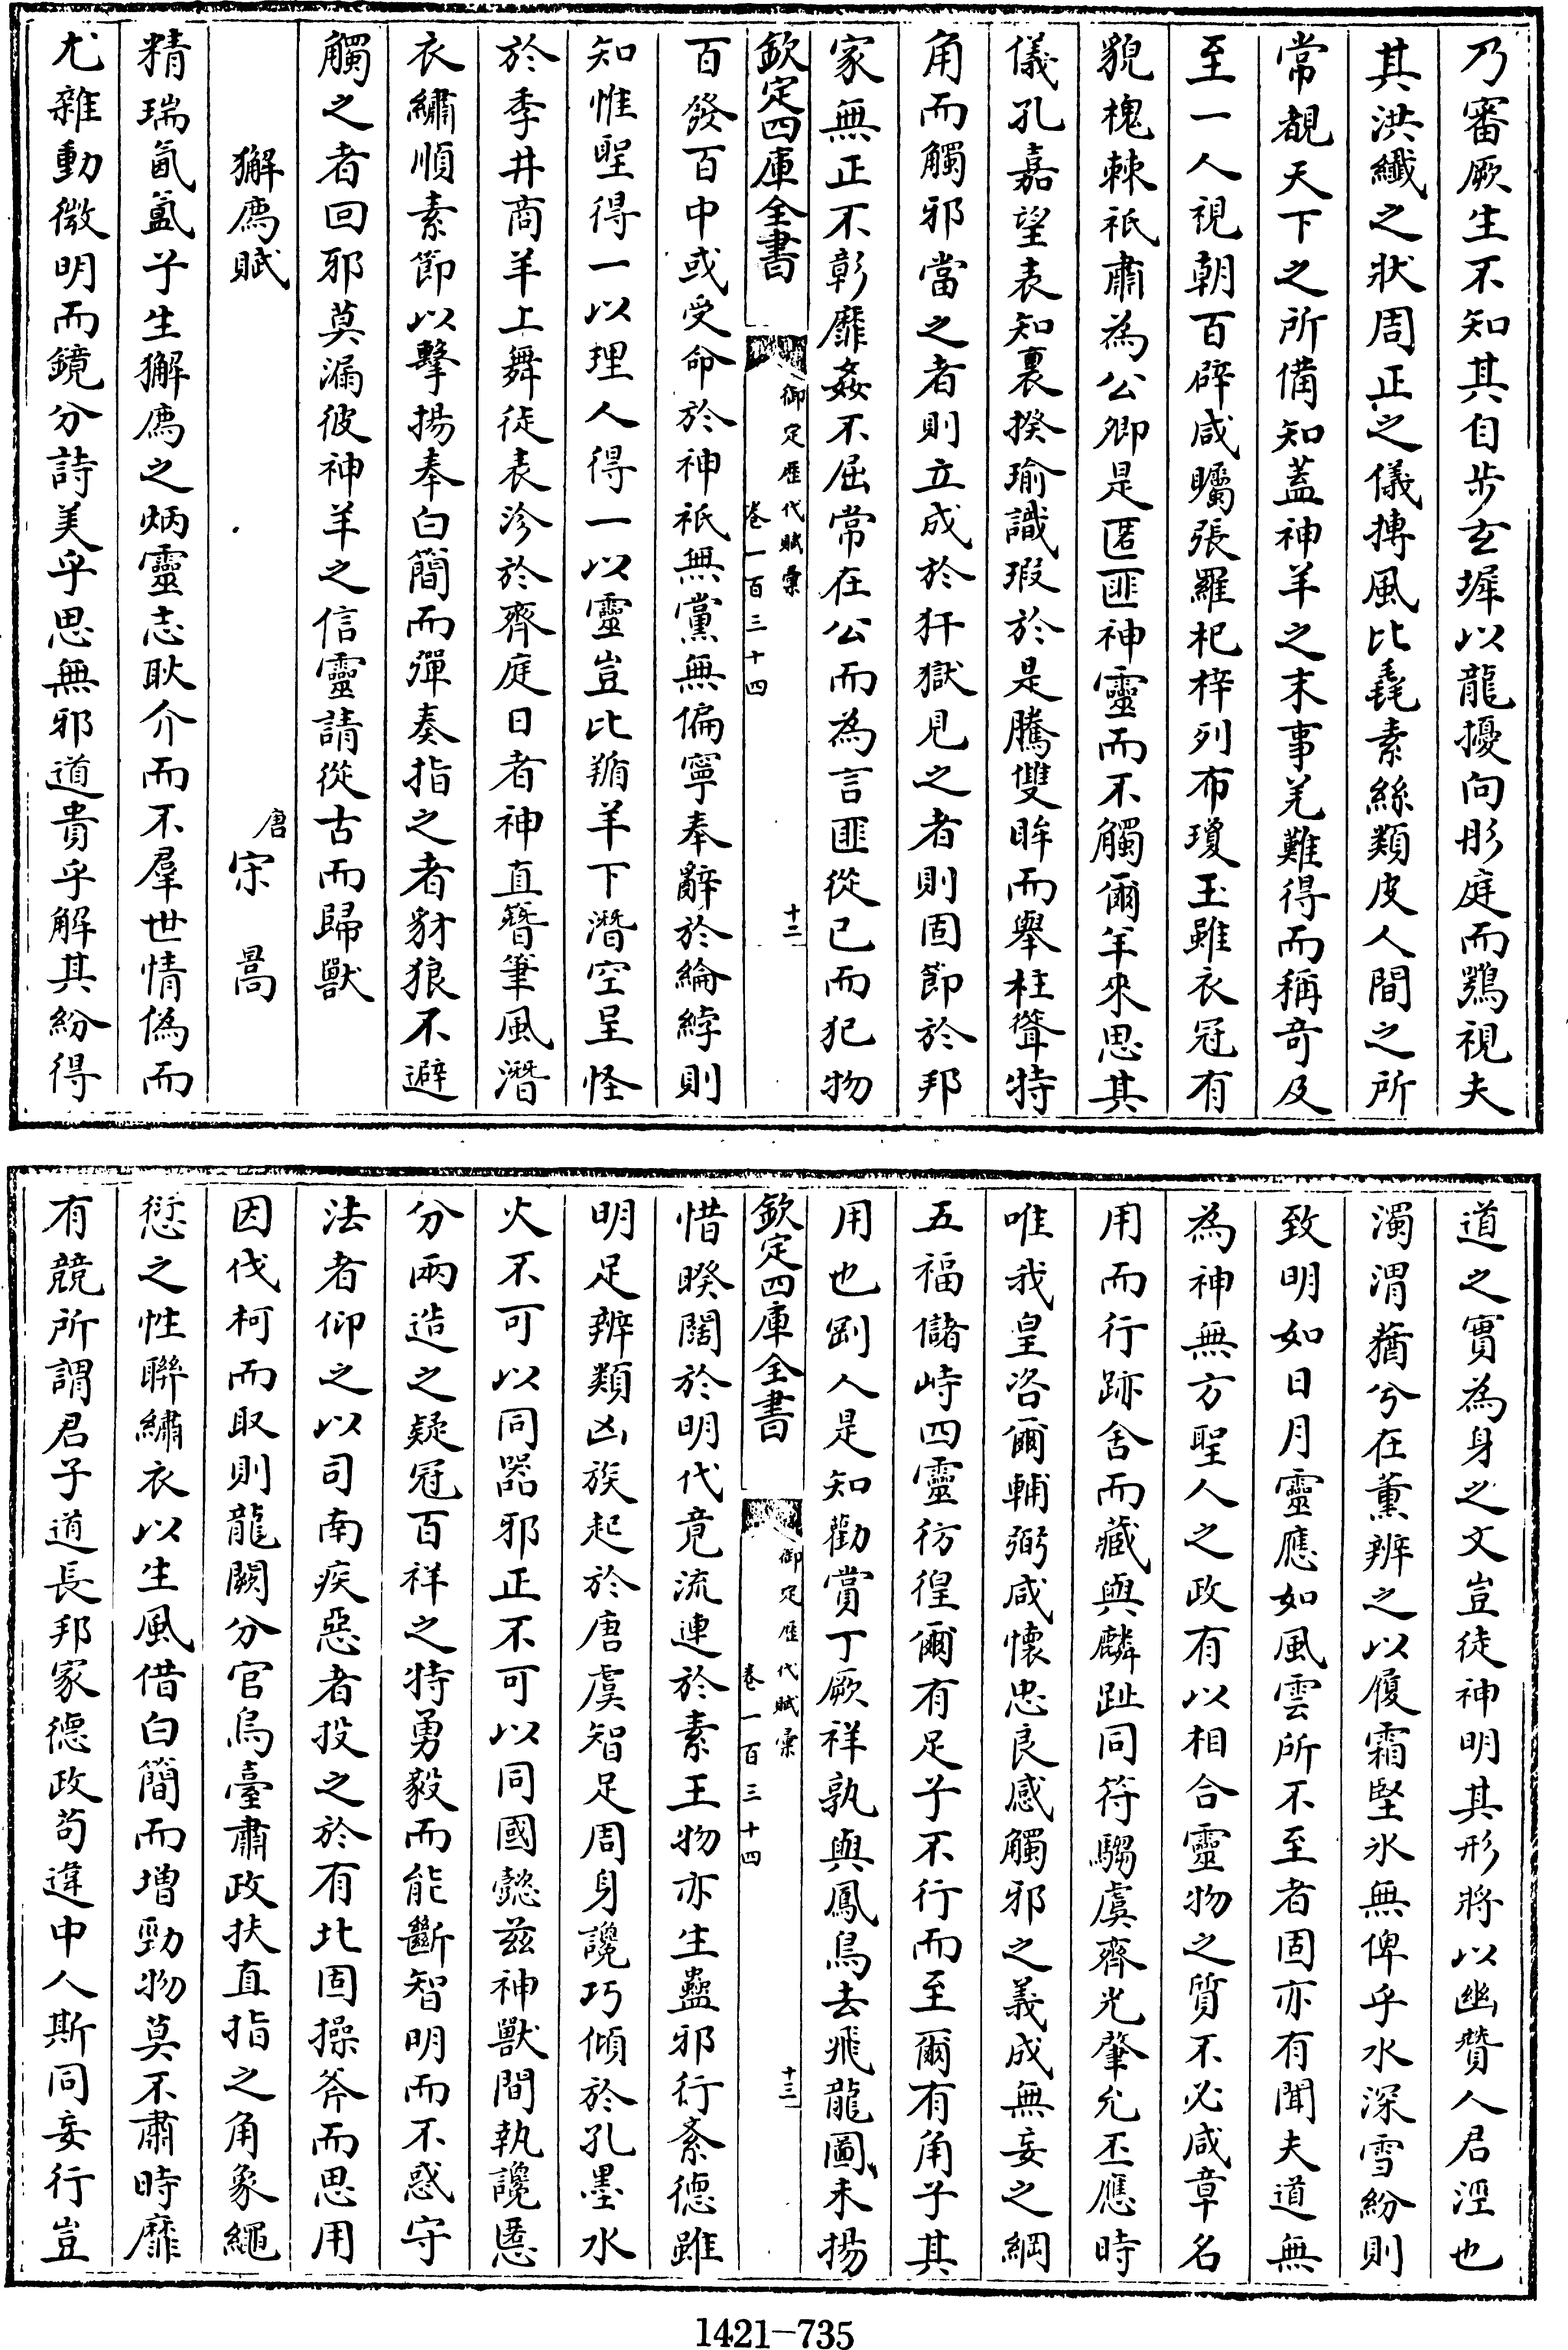 乃審厥生不知其自步玄墀以龍擾向彤庭而鶚視夫
其洪纖之狀周正之儀摶風比毳素絲類皮人間之所
常覩天下之所備知蓋神羊之末事羌難得而稱奇及
至一人視朝百辟咸矚張羅杞梓列布瓊玉雖衣冠有
貌槐棘祇肅為公卿是匿匪神靈而不觸爾羊來思其
儀孔嘉望表知裏揆瑜識瑕於是騰雙眸而舉柱聳特
角而觸邪當之者則立成於犴獄見之者則固節於邦
家無正不彰靡姦不屈常在公而為言匪從已而犯物
欽定四庫全書
御定歴代賦彚
卷一百三十四
十二
百發百中或受命於神祇無黨無偏寧奉辭於綸綍則
知惟聖得一以理人得一以靈豈比羵羊下潛空呈怪
於季井商羊上舞徒表沴於齊庭日者神直簪筆風潛
衣繡順素節以擊揚奉白簡而彈奏指之者豺狼不避
觸之者回邪莫漏彼神羊之信靈請從古而歸獸
獬廌賦
唐宋暠
精瑞氤氳孑生獬廌之炳靈志耿介而不羣世情偽而
尤雜動微明而鏡分詩美乎思無邪道貴乎解其紛得
道之實為身之文豈徒神明其形將以幽贊人君涇也
濁渭蕕兮在薰辨之以履霜堅氷無俾乎水深雪紛則
致明如日月靈應如風雲所不至者固亦有聞夫道無
為神無方聖人之政有以相合靈物之質不必咸章名
用而行跡舍而藏與麟趾同符騶虞齊光肇允丕應時
唯我皇咨爾輔弼咸懷忠良感觸邪之義成無妄之綱
五福儲峙四靈彷徨爾有足孑不行而至爾有角孑其
用也剛人是知勸賞丁厥祥孰與鳳鳥去飛龍圖未揚
欽定四庫全書
御定歴代賦彚
卷一百三十四
十三
惜暌闊於明代竟流連於素王物亦生蠱邪行紊德雖
明足辨類凶族起於唐虞智足周身讒巧傾於孔墨水
火不可以同器邪正不可以同國懿兹神獸間執讒慝
分兩造之疑冠百祥之特勇毅而能斷智明而不惑守
法者仰之以司南疾惡者投之於有北固操斧而思用
因伐柯而取則龍闕分官烏臺肅政扶直指之角象繩
愆之性聯繡衣以生風借白簡而增勁物莫不肅時靡
有競所謂君子道長邦家德政苟違中人斯同妄行豈
1421-735